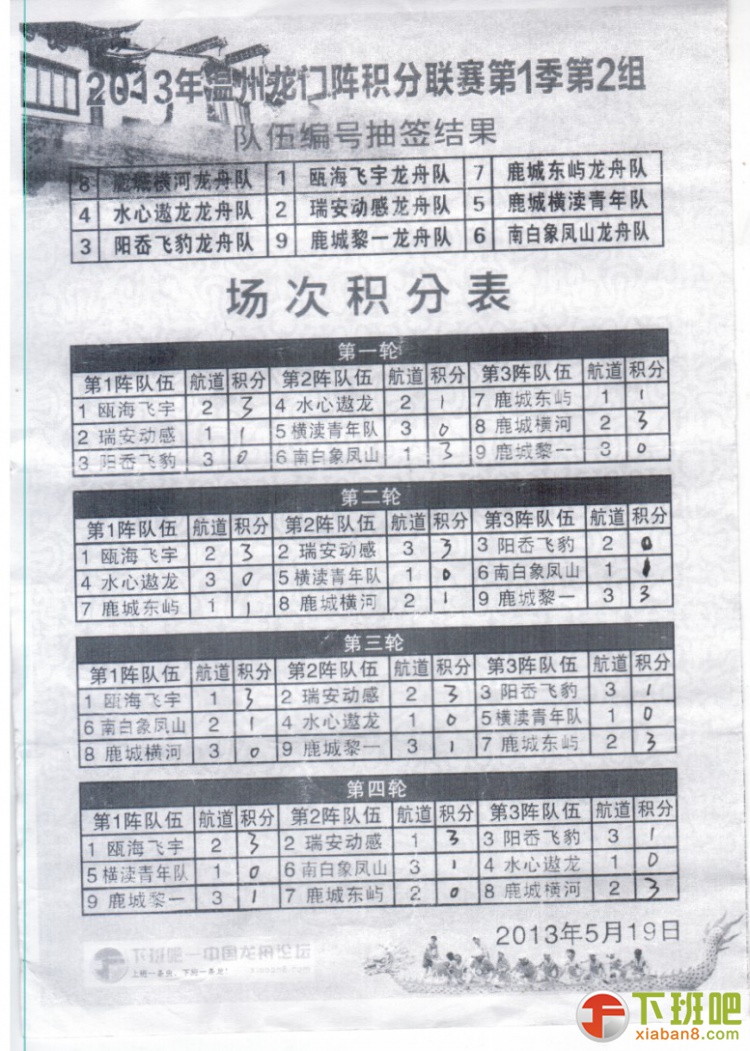 2013年温州龙门阵积分联赛第1季第2组
队伍编号抽签结果
8 鹿城横河龙舟队 1 瓯海飞宇龙舟队 7 鹿城东屿龙舟队
4 水心遨龙龙舟队 2 瑞安动感龙舟队 5 鹿城横渎青年队
3 阳岙飞豹龙舟队 9 鹿城黎一龙舟队 6 南白象凤山龙舟队
场次积分表
第一轮
第1阵队伍 航道 积分 第2阵队伍 航道 积分 第3阵队伍 航道 积分
1 瓯海飞宇 2 3 4 水心遨龙 2 1 7 鹿城东屿 1 1
2 瑞安动感 1 1 5 横渎青年队 3 0 8 鹿城横河 2 3
3 阳岙飞豹 3 0 6 南白象凤山 1 3 9 鹿城黎一 3 0
第二轮
第1阵队伍 航道 积分 第2阵队伍 航道 积分 第3阵队伍 航道 积分
1 瓯海飞宇 2 3 2 瑞安动感 3 3 3 阳岙飞豹 2 0
4 水心遨龙 3 0 5 横渎青年队 1 0 6 南白象凤山 1 1
7 鹿城东屿 1 1 8 鹿城横河 2 1 9 鹿城黎一 3 3
第三轮
第1阵队伍 航道 积分 第2阵队伍 航道 积分 第3阵队伍 航道 积分
1 瓯海飞宇 1 3 2 瑞安动感 2 3 3 阳岙飞豹 3 1
6 南白象凤山 2 1 4 水心遨龙 1 0 5 横渎青年队 1 0
8 鹿城横河 3 0 9 鹿城黎一 3 1 7 鹿城东屿 2 3
第四轮
第1阵队伍 航道 积分 第2阵队伍 航道 积分 第3阵队伍 航道 积分
1 瓯海飞宇 2 3 2 瑞安动感 1 3 3 阳岙飞豹 3 1
5 横渎青年队 1 0 6 南白象凤山 3 1 4 水心遨龙 1 0
9 鹿城黎一 3 1 7 鹿城东屿 2 0 8 鹿城横河 2 3
2013年5月19日
下班吧—中国龙舟论坛
xiaban8.com
下班吧
xiaban8.com